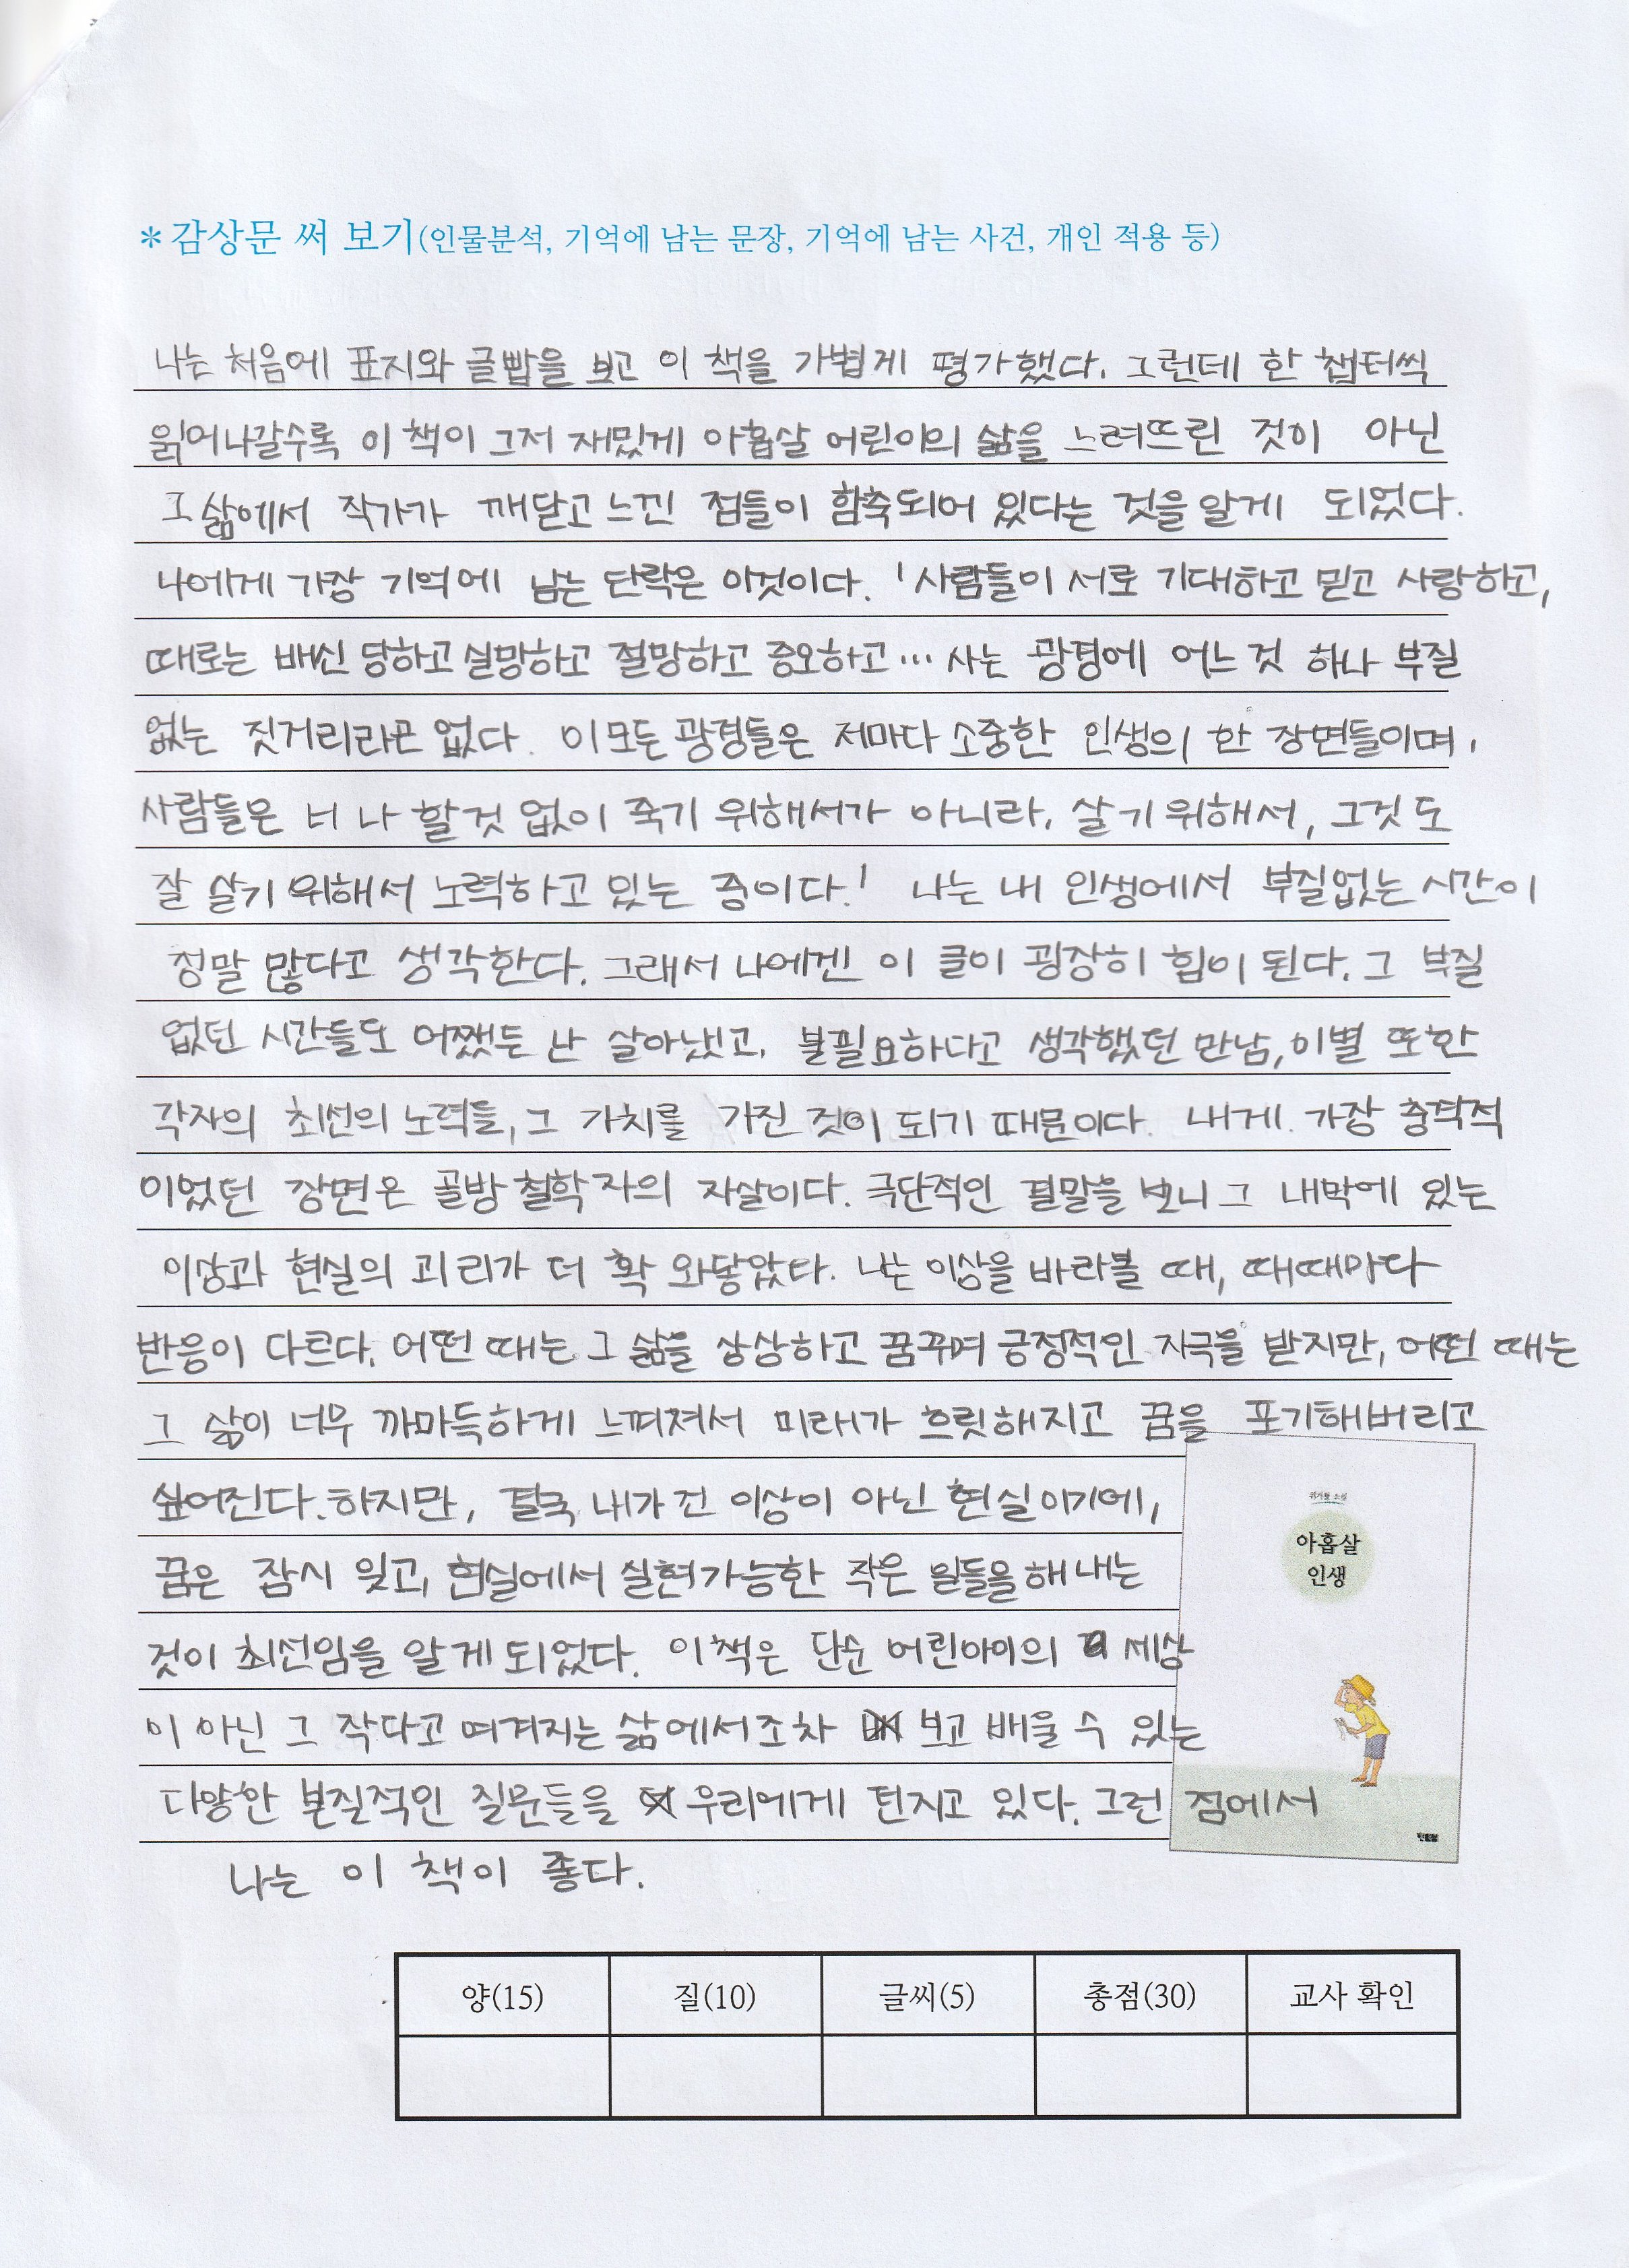 * 감상문 써 보기(인물분석, 기억에 남는 문장, 기억에 남는 사건, 개인 적용 등)
나는 처음에 표지와 글밥을 보고 이 책을 가볍게 평가했다. 그런데 한 챕터씩
읽어나갈수록 이 책이 그저 재밌게 아홉살 어린이의 삶을 느려뜨린 것이 아닌
그 삶에서 작가가 깨닫고 느낀 점들이 함축되어 있다는 것을 알게 되었다.
나에게 가장 기억에 남는 단락은 이것이다. '사람들이 서로 기대하고 믿고 사랑하고,
때로는 배신 당하고 실망하고 절망하고 증오하고… 사는 광경에 어느 것 하나 부질
없는 짓거리라곤 없다. 이 모든 광경들은 저마다 소중한 인생의 한 장면들이며,
사람들은 너 나 할것 없이 죽기 위해서가 아니라, 살기 위해서, 그것도
잘 살기 위해서 노력하고 있는 중이다.' 나는 내 인생에서 부질없는 시간이
정말 많다고 생각한다. 그래서 나에겐 이 글이 굉장히 힘이 된다. 그 부질
없던 시간들도 어쨌든 난 살아냈고, 불필요하다고 생각했던 만남, 이별 또한
각자의 최선의 노력들, 그 가치를 가진 것이 되기 때문이다. 내게 가장 충격적
이었던 장면은 골방 철학자의 자살이다. 극단적인 결말을 보니 그 내막에 있는
이상과 현실의 괴리가 더 확 와닿았다. 나는 이상을 바라볼 때, 때때마다
반응이 다르다. 어떤 때는 그 삶을 상상하고 꿈꾸며 긍정적인 자극을 받지만, 어떤 때는
그 삶이 너무 까마득하게 느껴져서 미래가 흐릿해지고 꿈을 포기해버리고
싶어진다. 하지만, 결국 내가 건 이상이 아닌 현실이기에,
꿈은 잠시 잊고, 현실에서 실현가능한 작은 일들을 해내는
것이 최선임을 알게 되었다. 이 책은 단순 어린아이의 세상
이 아닌 그 작다고 여겨지는 삶에서조차 보고 배울 수 있는
다양한 본질적인 질문들을 우리에게 던지고 있다. 그런 점에서
나는 이 책이 좋다.
위기철 소설
아홉살
인생
양(15) 질(10) 글씨(5) 총점(30) 교사 확인